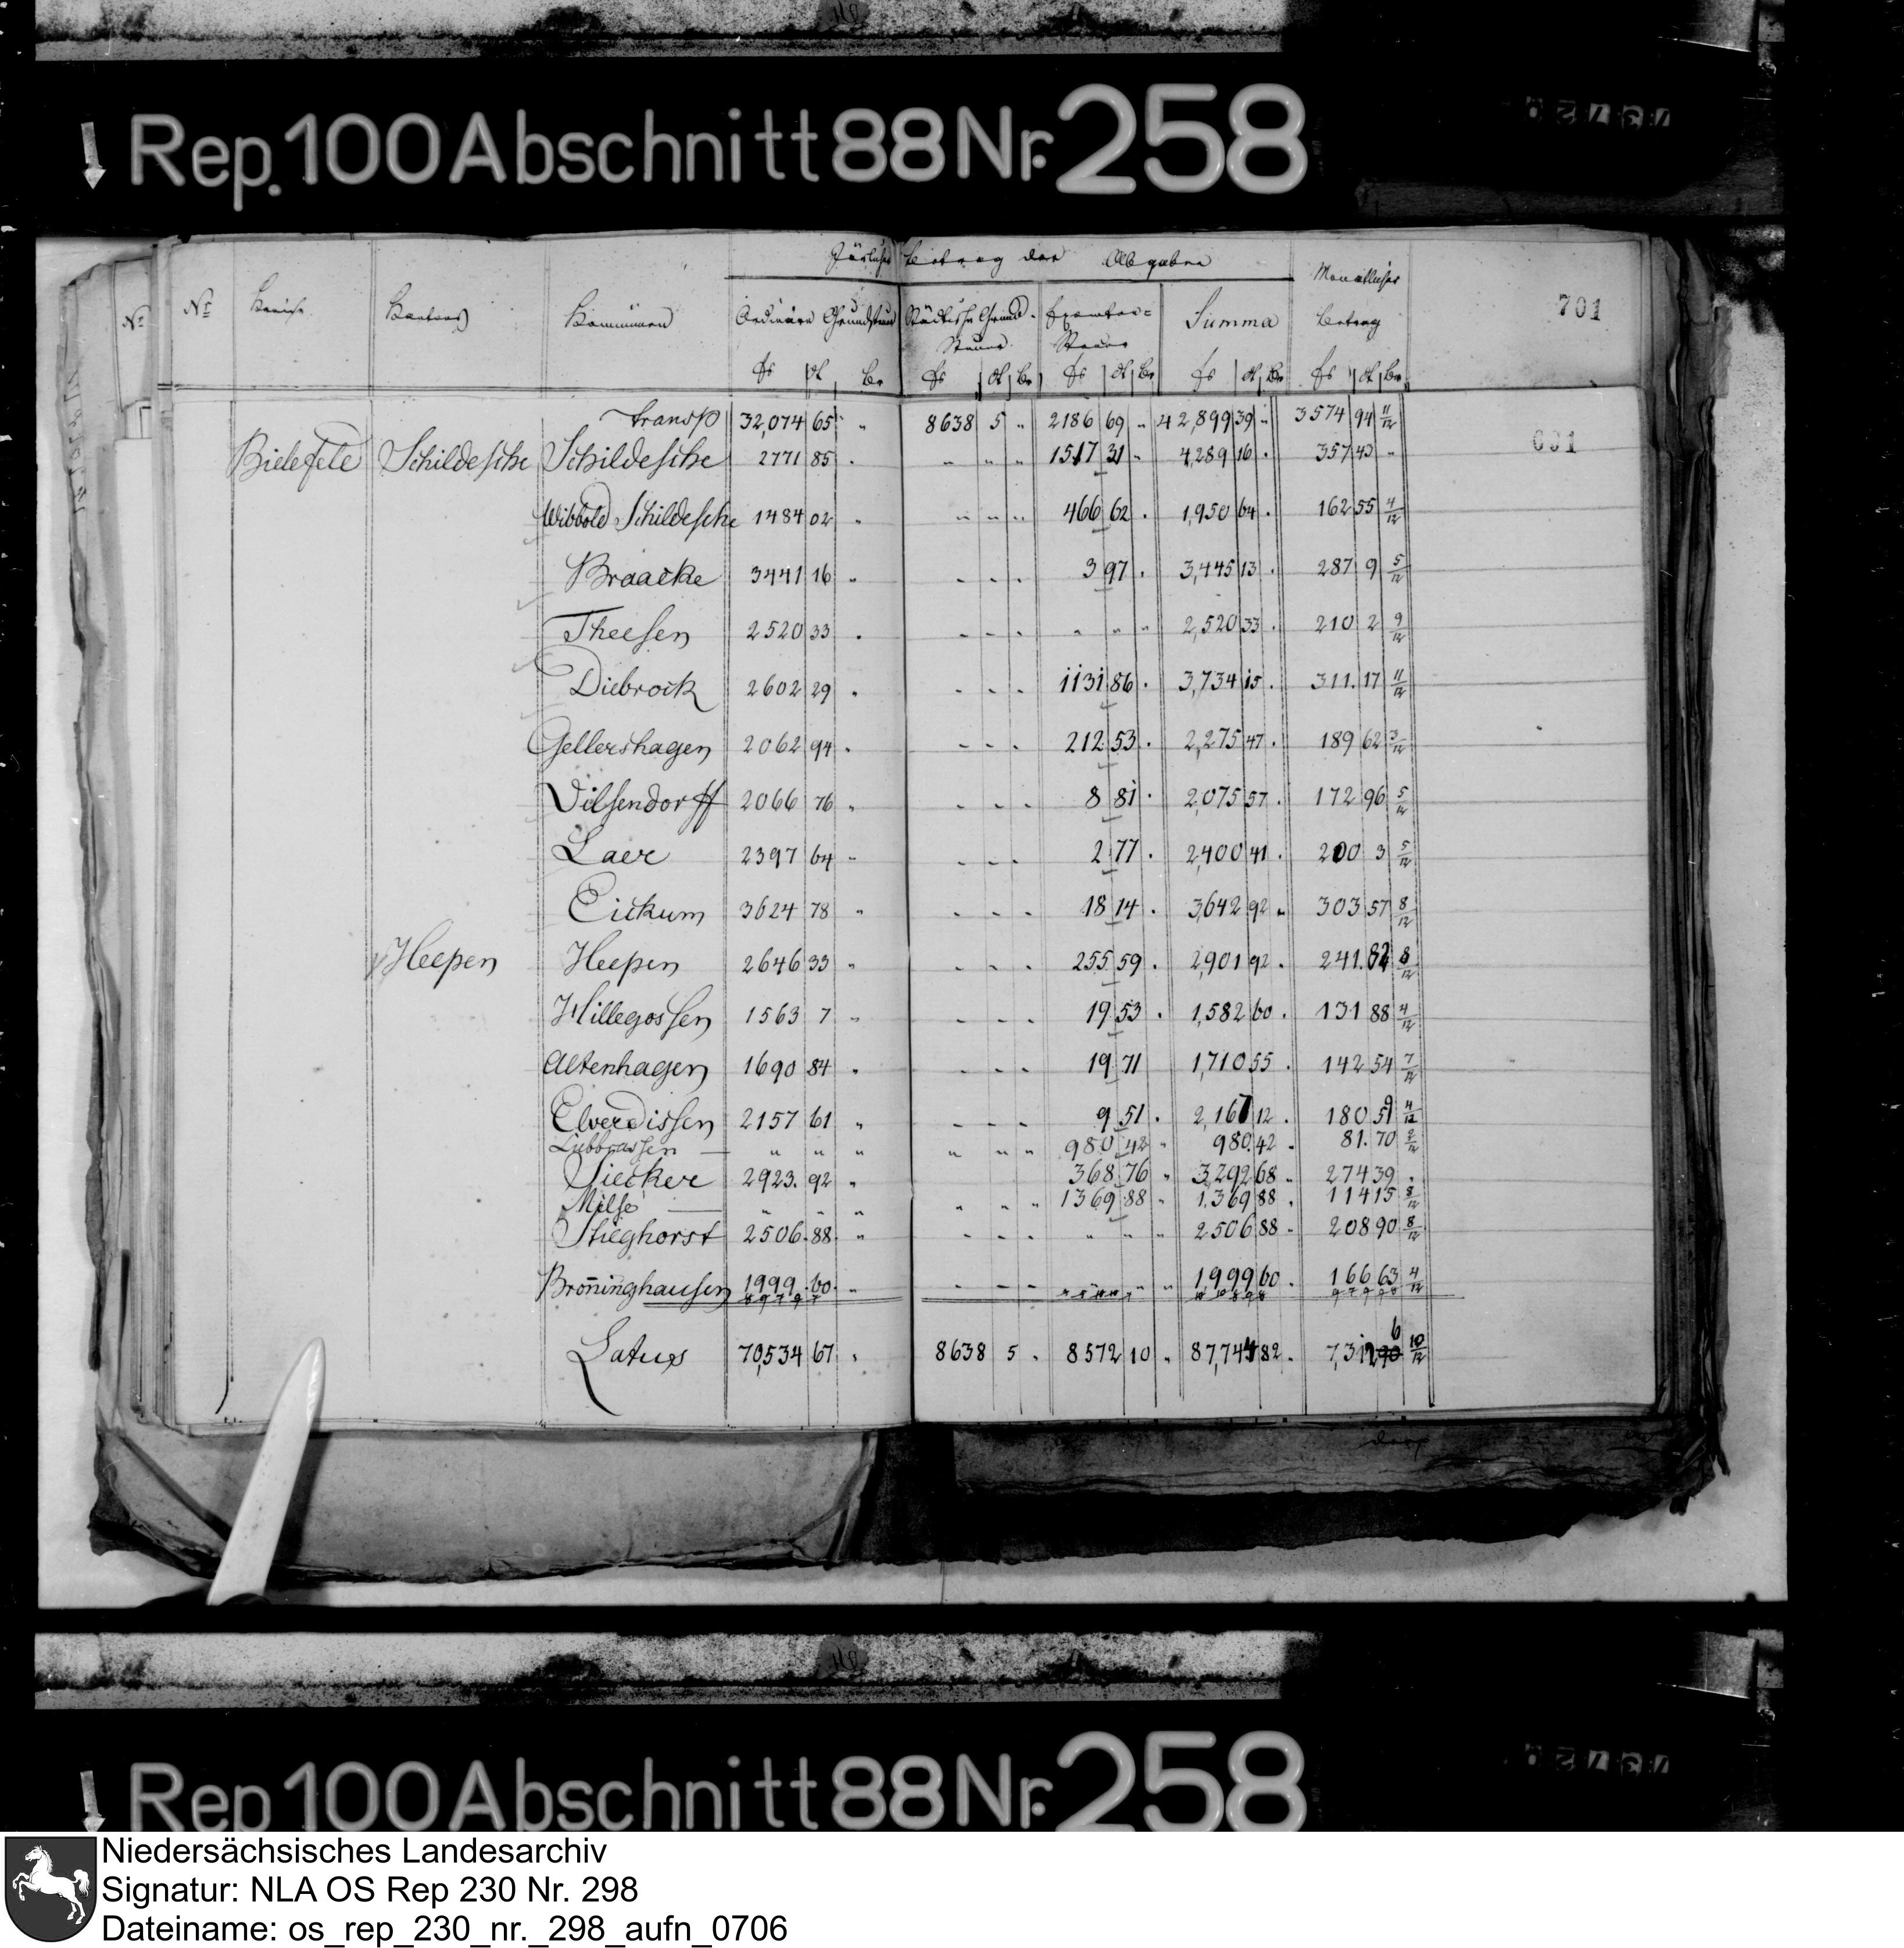 Rep.100 Abschnitt 88 Nr. 258
Järlicher Betrag der Abgaben
Monatlicher Betrag
701
No No Kantons Kommünen Ordinäre Grundsteuer Städtische Grund-Steuer Exemten-Steuer Summa
fs ct Cr fs ct Cr fs ct Cr fs ct Cr fs ct Cr
Transp 32,074 65 " 8638 5 " 2186 69 " 42,899 39 " 3574 94 11/12
001
Bielefeld Schildesche Schildesche 2771 85 . " " " 1517 31 " 4,289 16 . 357 43 "
Wibbold Schildesche 1484 02 " " " " 466 62 . 1,950 64 . 162 55 4/12
Braacke 3441 16 " - - . 3 97 . 3,445 13 . 287 9 5/12
Theesen 2520 33 . - - . " " " 2,520 33 . 210 2 9/12
Diebrock 2602 29 . - - . 1131 86 . 3,734 15 . 311. 17 11/12
Gellershagen 2062 94 . - - . 212 53 . 2,275 47 . 189 62 3/12
Vilsendorff 2066 76 . - - . 8 81 . 2,075 57 . 172 96 5/12
Laer 2397 64 - - - . 2 77 . 2400 41 . 200 3 5/12
Eickum 3624 78 " - - . 18 14 . 3,642 92 " 303 57 8/12
Heepen Heepen 2646 33 " - - . 255 59 . 2,901 92 . 241. 82 8/12
Hillegossen 1563 7 " - - . 19 53 . 1,582 60 . 131 88 4/12
Altenhagen 1690 84 . - - . 19 71 1,710 55 . 142 54 7/12
Elverdissen 2157 61 " - - - 9 51 . 2,167 12 . 180 59 4/12
Lübbrassen — " " " " " " 980 42 " 980. 42 - 81. 70 2/12
Siecker 2923. 92 " 368 76 " 3,292 68 " 274 39 .
Milse — " " " " " " 1369 88 " 1,369 88 . 114 15 8/12
Stieghorst 2506. 88 " - - - " " " 2506 88 - 208 90 8/12
Bröninghausen 1999. 60. " - - - " " " 1,999 60 . 166 63 4/12
Latus 70,534 67 . 8638 5 . 8572 10 " 87,744 82 . 7,312 6 10/12
Rep 100 Abschnitt 88 Nr. 258
Niedersächsisches Landesarchiv
Signatur: NLA OS Rep 230 Nr. 298
Dateiname: os_rep_230_nr._298_aufn_0706